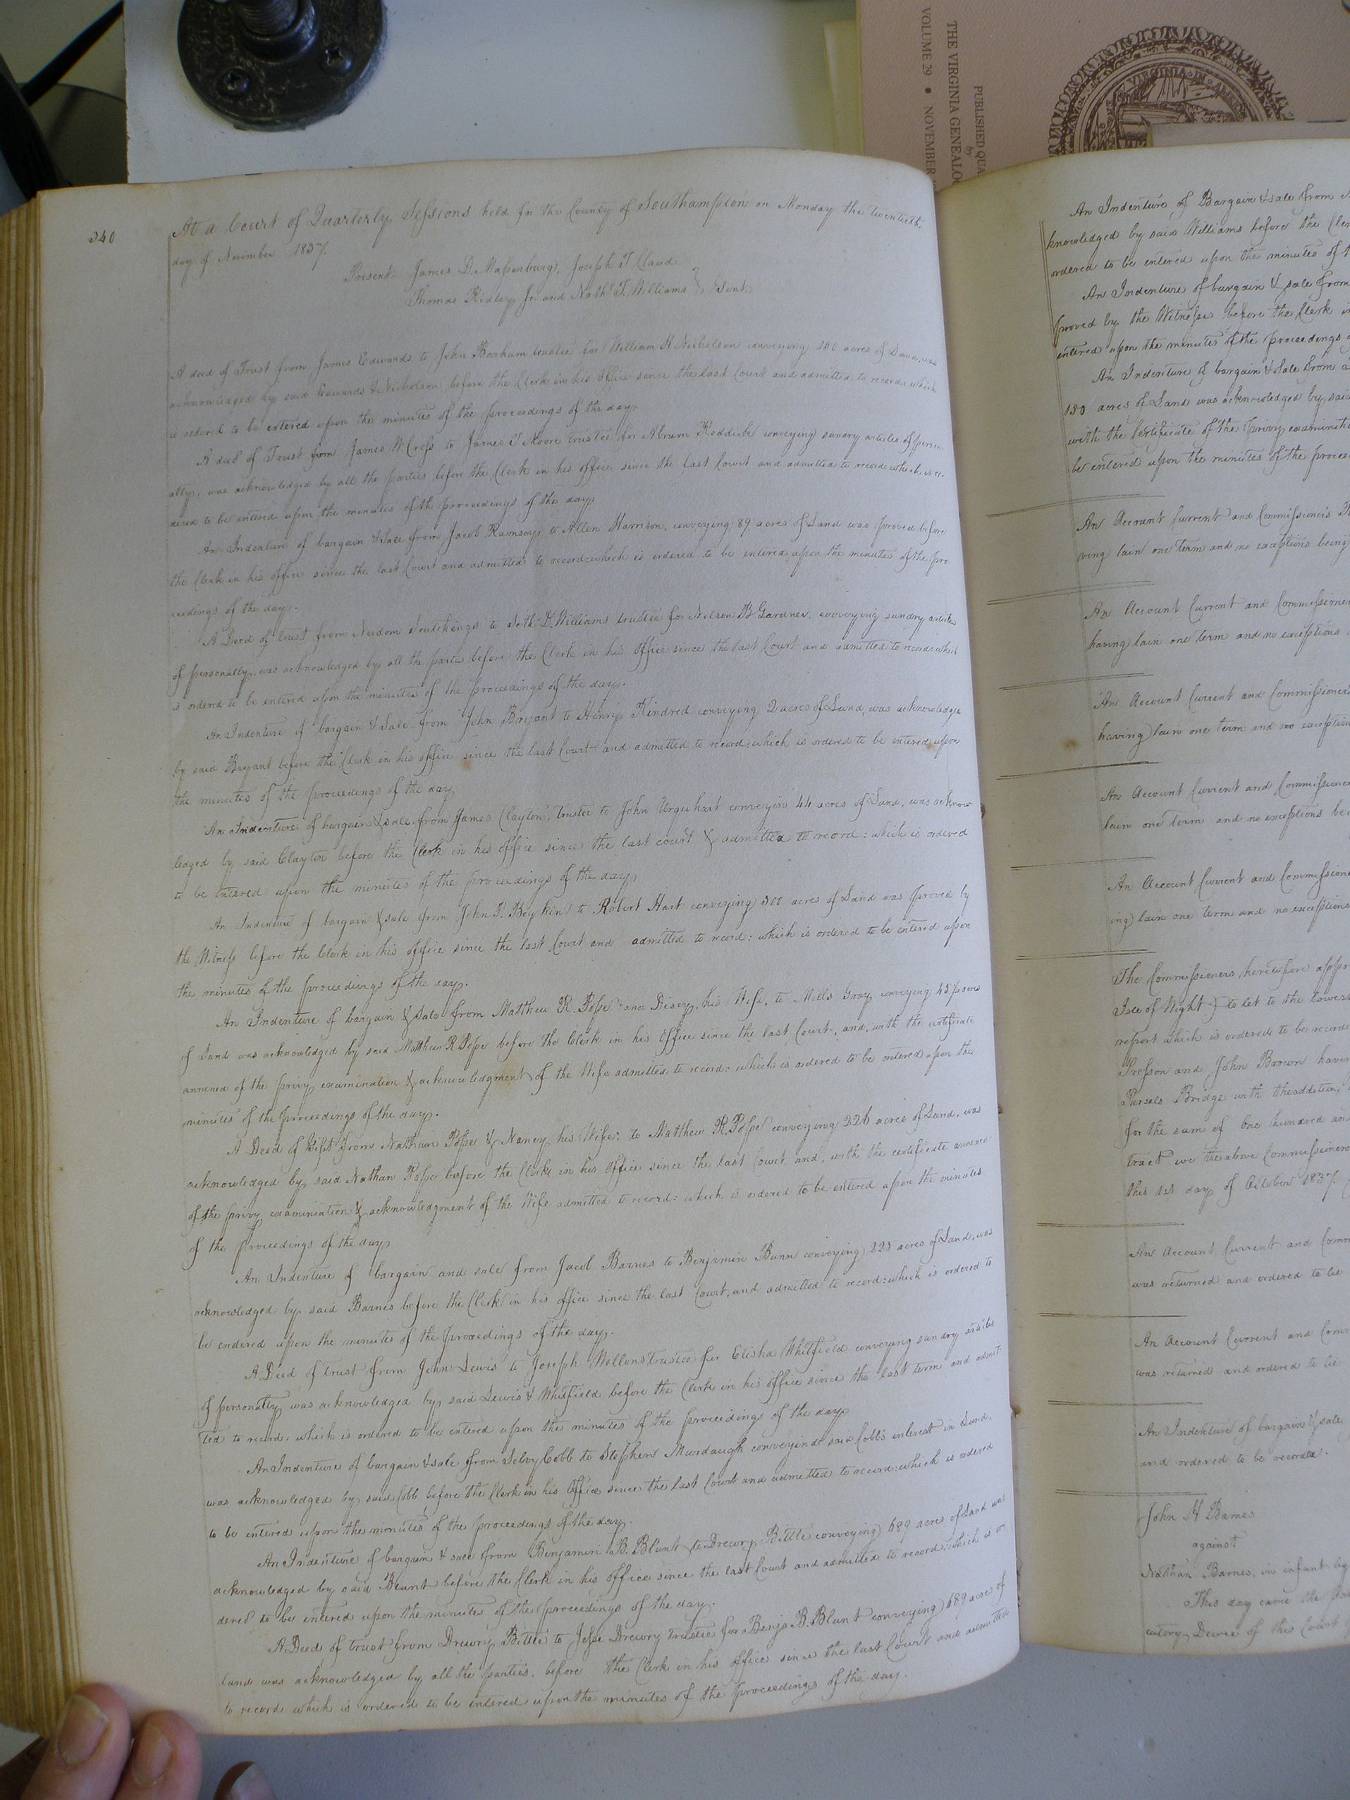 340
At a Court of Quarterly Sessions held for the County of Southampton on Monday the twentieth
day of November 1837.
Present James D. Massenburg, Joseph T. Claud
Thomas Ridley Jr. and Nath. T. Williams } Gent.
A deed of Trust from James Edwards to John Barham trustee for William H. Nicholson conveying acres of Land, was
acknowledged by said Edwards & Nicholson before the Clerk in his Office since the last Court and admitted to record: which
is ordered to be entered upon the minutes of the proceedings of the day.
A deed of Trust from James W. Cross to James T. Moore trustee for Abram Reddick conveying sundry articles of person-
alty, was acknowledged by all the parties before the Clerk in his office since the last Court and admitted to record which is or-
dered to be entered upon the minutes of the proceedings of the day.
An Indenture of bargain & sale from Jacob Ramsay to Allen Harrison, conveying 89 acres of Land was proved before
the Clerk in his office since the last Court and admitted to record: which is ordered to be entered upon the minutes of the pro
ceedings of the day.
A Deed of trust from to Nath. T. Williams trustee for Nelson B. Gardner, conveying sundry articles
of personalty, was acknowledged by all the parties before the Clerk in his Office since the last Court and admitted to record which
is ordered to be entered upon the minutes of the proceedings of the day.
An Indenture of bargain & Sale from John Bryant to Henry Kindred conveying 2 acres of Land, was acknowledged
by said Bryant before the Clerk in his office since the last Court and admitted to record: which is ordered to be entered upon
the minutes of the proceedings of the day.
An Indenture of bargain & sale from James Clayton, trustee to John Urquhart conveying 44 acres of Land, was acknow
ledged by said Clayton before the Clerk in his office since the last court & admitted to record: which is ordered
to be entered upon the minutes of the proceedings of the day.
An Indenture of bargain & sale from John D. Boykin to Robert Hart conveying 300 acres of Land was proved by
the Witness before the Clerk in his office since the last Court and admitted to record: which is ordered to be entered upon
the minutes of the proceedings of the day.
An Indenture of bargain & sale from Matthew R. Pope and Disey, his Wife, to Mills Gray conveying acres
of Land was acknowledged by said Matthew R. Pope before the Clerk in his Office since the last Court, and, with the certificate
annexed of the privy examination & acknowledgment of the Wife admitted to record: which is ordered to be entered upon the
minutes of the proceedings of the day.
A Deed of Gift from Nathan Pope & Nancy, his Wife, to Matthew R. Pope conveying 226 acres of Land, was
acknowledged by said Nathan Pope before the Clerk in his Office since the last Court and, with the certificate annexed
of the privy examination & acknowledgment of the Wife admitted to record: which is ordered to be entered upon the minutes
of the proceedings of the day.
An Indenture of bargain and sale from Jacob Barnes to Benjamin Bunn conveying 223 acres of Land, was
acknowledged by said Barnes before the Clerk in his office since the last Court, and admitted to record: which is ordered to
be entered upon the minutes of the proceedings of the day.
A Deed of trust from John Lewis to Joseph trustee for Elisha Whitfield conveying sundry articles
of personalty was acknowledged by said Lewis & Whitfield before the Clerk in his office since the last term and admit
ted to record: which is ordered to be entered upon the minutes of the proceedings of the day.
An Indenture of bargain & sale from Selvy Cobb to Stephen Murdaugh conveying said Cobb's interest in Land,
was acknowledged by said Cobb before the Clerk in his Office since the last Court and admitted to record: which is ordered
to be entered upon the minutes of the proceedings of the day.
An Indenture of bargain & sale from Benjamin B. Blunt to Drewry Bittle conveying 689 acres of Land was
acknowledged by said Blunt before the Clerk in his office since the last Court and admitted to record: which is or
dered to be entered upon the minutes of the proceedings of the day.
A Deed of trust from Drewry Bittle to Jesse Drewry trustee for Benja. B. Blunt conveying 689 acres of
land was acknowledged by all the parties, before the Clerk in his office since the last Court and admitted
to record which is ordered to be entered upon the minutes of the proceedings of the day.
An Indenture of Bargain & sale from
knowledged by said Williams before the Cle
ordered to be entered upon the minutes of t
An Indenture of bargain & sale from
proved by the Witness before the Clerk i
entered upon the minutes of the proceedings
An Indenture of bargain & Sale from
130 acres of Land was acknowledged by sai
with the Certificate of the privy examinati
be entered upon the minutes of the procee
An Account Current and Commissioner's R
ving lain one term and no exceptions being
An Account Current and Commissioner
having lain one term and no exceptions
An Account Current and Commissioner
having lain one term and no exceptions
An Account Current and Commissioner
lain one term and no exceptions be
An Account Current and Commissione
ing lain one term and no exceptions
The Commissioners heretofore appo
Isle of Wight } to let to the lowest
report which is ordered to be recorde
and John Barnes having
Bridge with the addition,
for the sum of one hundred an
tract we the above Commissioners
this 1st day of October 1837.
An Account Current and Comm
was returned and ordered to lie
An Account Current and Comm
was returned and ordered to lie
An Indenture of bargain & sale
and ordered to be recorded.
John H. Barnes
against
Nathan Barnes, an infant by
This day came the
cutory Decree of this Court
PUBLISHED QUA
by
THE VIRGINIA GENEALO
VOLUME 29 • NOVEMBER
VIRGINIA